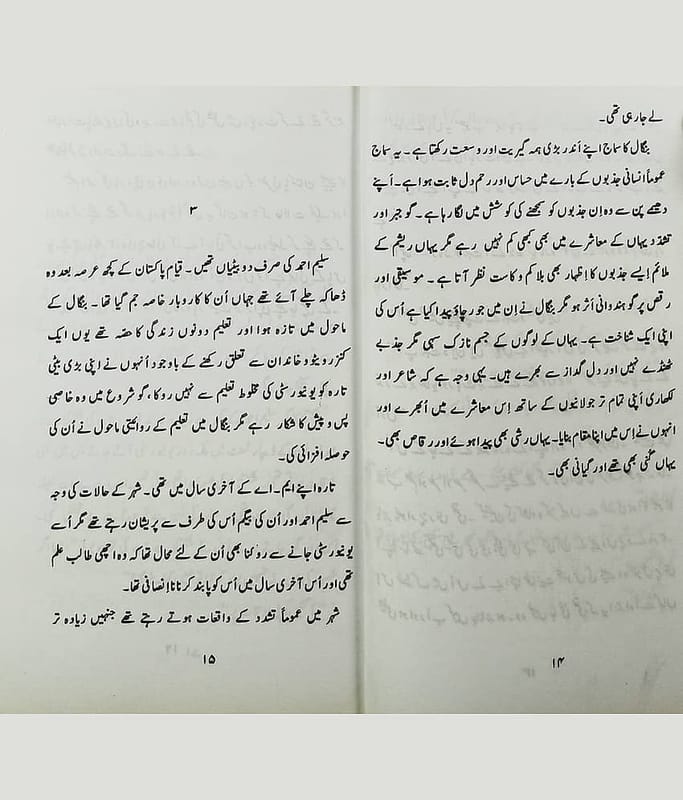 لے جا رہی تھی۔
بنگال کا سماج اپنے اندر بڑی ہمہ گیریت اور وسعت رکھتا ہے۔ یہ سماج
عموماً انسانی جذبوں کے بارے میں حساس اور رحم دل ثابت ہوا ہے۔ اپنے
دھیمے پن سے وہ اِن جذبوں کو سمجھنے کی کوشش میں لگا رہا ہے۔ گو جبر اور
تشدّد یہاں کے معاشرے میں بھی کبھی کم نہیں رہے مگر یہاں ریشم کے
ملائم ایسے جذبوں کا اِظہار بھی بلا کم و کاست نظر آتا ہے۔ موسیقی اور
رقص پر گو ہندوانی اثر ہو مگر بنگال نے اِن میں جو رچاؤ پیدا کیا ہے اُس کی
اپنی ایک شناخت ہے۔ یہاں کے لوگوں کے جسم نازک سہی مگر جذبے
ٹھنڈے نہیں اور دل گداز سے بھرے ہیں۔ یہی وجہ ہے کہ شاعر اور
لکھاری اپنی تمام تر جولانیوں کے ساتھ اِس معاشرے میں اُبھرے اور
انہوں نے اِس میں اپنا مقام بنایا۔ یہاں رشی بھی پیدا ہوئے اور رقاص بھی۔
یہاں گنی بھی تھے اور گیانی بھی۔
۱۴
۳
سلیم احمد کی صرف دو بیٹیاں تھیں۔ قیامِ پاکستان کے کچھ عرصہ بعد وہ
ڈھاکہ چلے آئے تھے جہاں اُن کا کاروبار خاصہ جم گیا تھا۔ بنگال کے
ماحول میں تازہ ہوا اور تعلیم دونوں زندگی کا حصّہ تھے یوں ایک
کنزرویٹو خاندان سے تعلق رکھنے کے باوجود اُنہوں نے اپنی بڑی بیٹی
تارہ کو یونیورسٹی کی مخلوط تعلیم سے نہیں روکا، گو شروع میں وہ خاصی
پس و پیش کا شکار رہے مگر بنگال میں تعلیم کے روایتی ماحول نے اُن کی
حوصلہ افزائی کی۔
تارہ اپنے ایم۔اے کے آخری سال میں تھی۔ شہر کے حالات کی وجہ
سے سلیم احمد اور اُن کی بیگم اُس کی طرف سے پریشان رہتے تھے مگر اُسے
یونیورسٹی جانے سے روکنا بھی اُن کے لئے محال تھا کہ وہ اچھی طالبِ علم
تھی اور اُس آخری سال میں اُس کو پابند کرنا ناانصافی تھا۔
شہر میں عموماً تشدد کے واقعات ہوتے رہتے تھے جنہیں زیادہ تر
۱۵